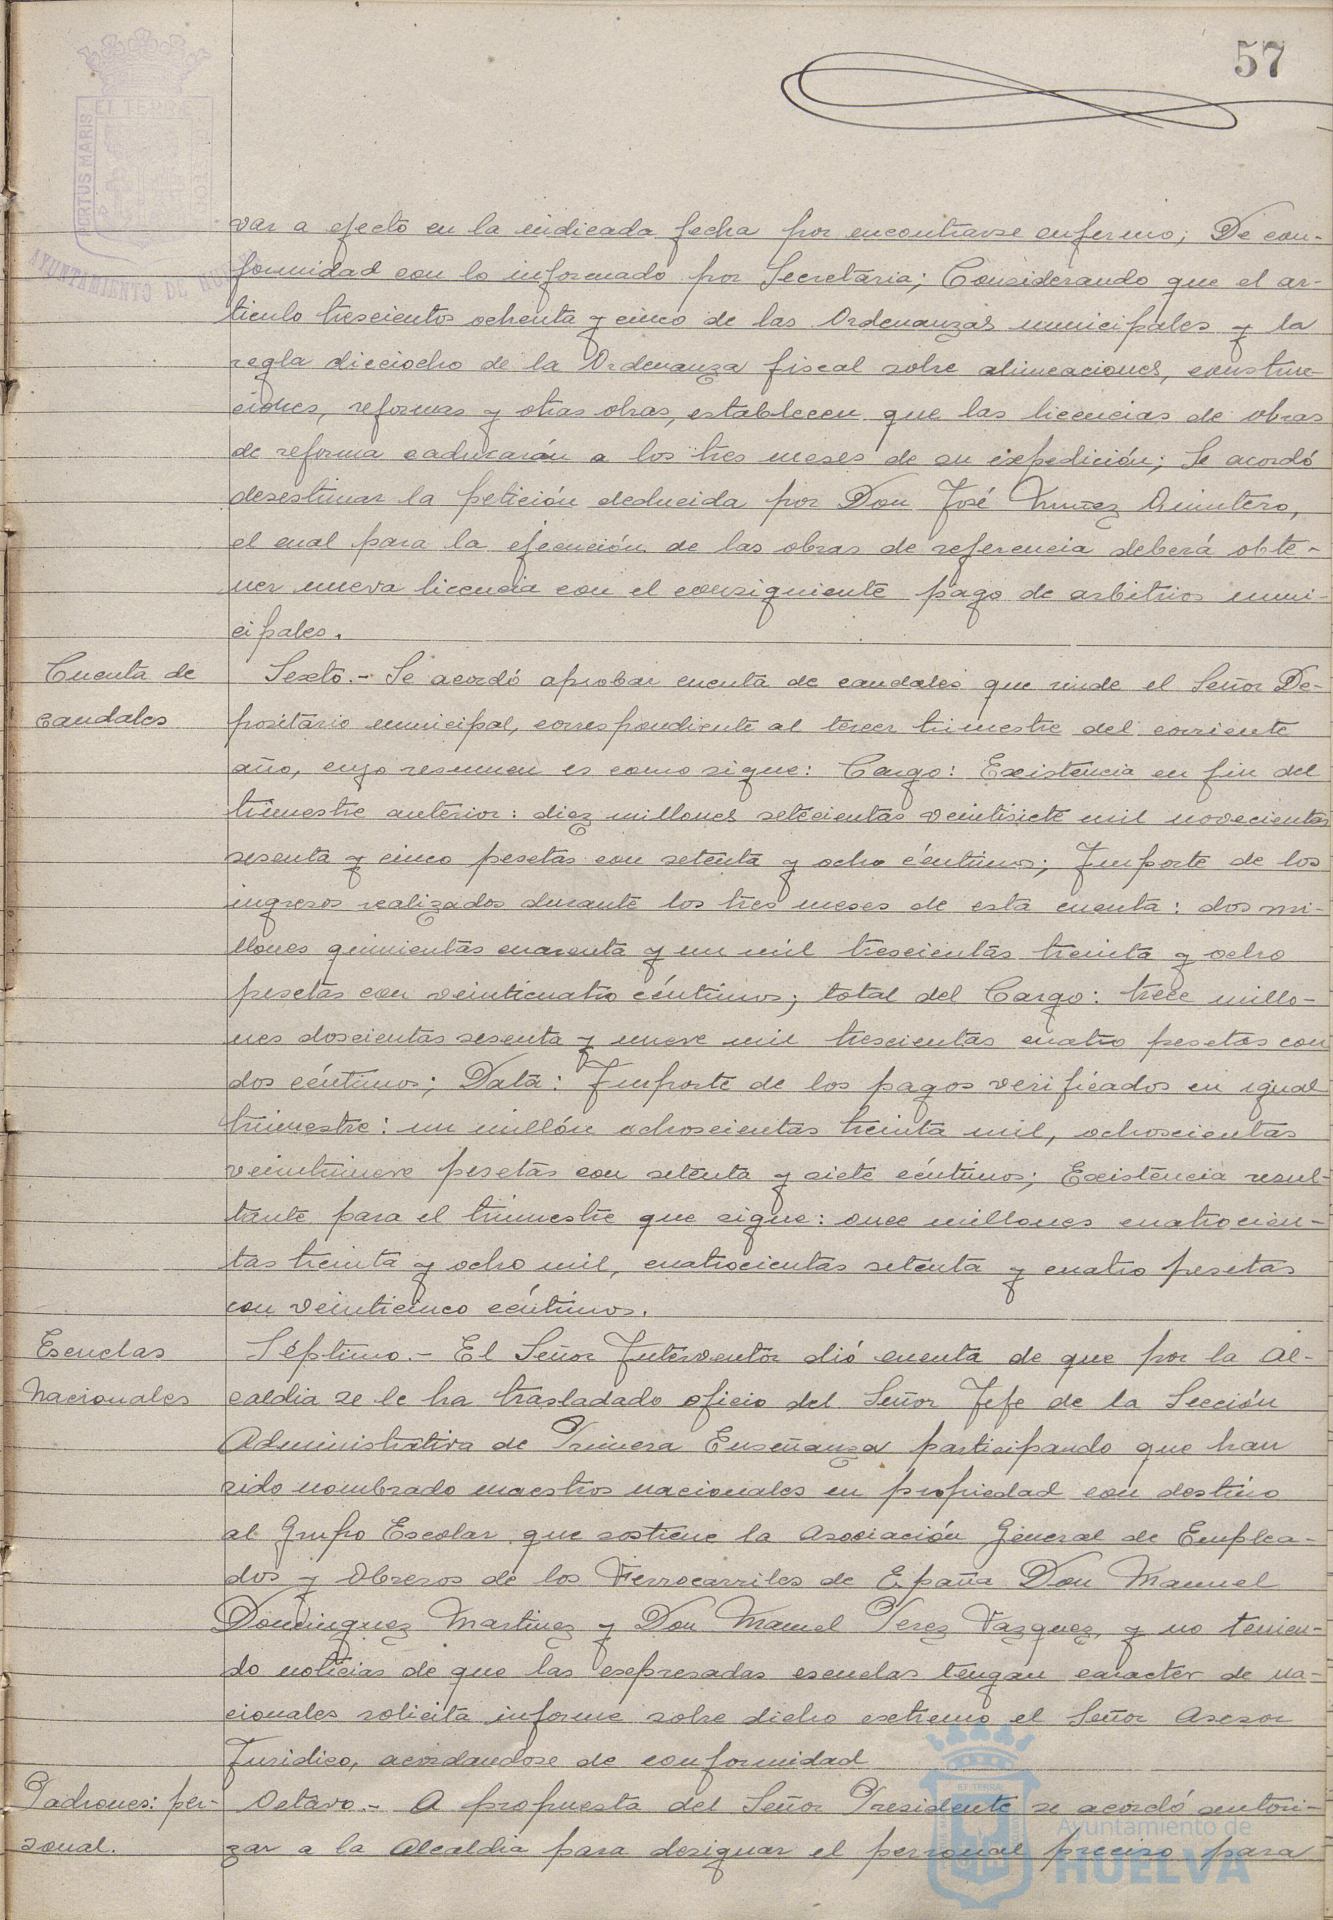 57
PORTUS MARIS ET TERRE CUSTODIA
AYUNTAMIENTO DE HUELVA
var a efecto en la indicada fecha por encontrarse enfermo; De con-
formidad con lo informado por Secretaria; Considerando que el ar-
ticulo trescientos ochenta y cinco de las Ordenanzas municipales y la
regla dieciocho de la Ordenanza fiscal sobre alineaciones, construc-
ciones, reformas y otras obras, establecen que las licencias de obras
de reforma caducarán a los tres meses de su expedición; Se acordó
desestimar la petición deducida por Don José Nuñez Quintero,
el cual para la ejecución de las obras de referencia deberá obte-
ner nueva licencia con el consiguiente pago de arbitrios muni-
cipales.
Cuenta de
caudales
Sexto.- Se acordó aprobar cuenta de caudales que rinde el Señor De-
positario municipal, correspondiente al tercer trimestre del corriente
año, cuyo resumen es como sigue: Cargo: Existencia en fin del
trimestre anterior: diez millones setecientas veintisiete mil novecientas
sesenta y cinco pesetas con setenta y ocho céntimos; Importe de los
ingresos realizados durante los tres meses de esta cuenta: dos mi-
llones quinientas cuarenta y un mil trescientas treinta y ocho
pesetas con veinticuatro céntimos; total del Cargo: trece millo-
nes doscientas sesenta y nueve mil trescientas cuatro pesetas con
dos céntimos; Data: Importe de los pagos verificados en igual
trimestre: un millón ochoscientas treinta mil, ochoscientas
veintinueve pesetas con setenta y siete céntimos; Existencia resul-
tante para el trimestre que sigue: once millones cuatrocien-
tas treinta y ocho mil, cuatrocientas setenta y cuatro pesetas
con veinticinco céntimos.
Escuelas
Nacionales
Séptimo.- El Señor Interventor dió cuenta de que por la Al-
caldia se le ha trasladado oficio del Señor Jefe de la Sección
Administrativa de Primera Enseñanza participando que han
sido nombrado maestros nacionales en propiedad con destino
al Grupo Escolar que sostiene la Asociación General de Emplea-
dos y Obreros de los Ferrocarriles de España Don Manuel
Dominguez Martinez y Don Manuel Perez Vazquez, y no tenien-
do noticias de que las expresadas escuelas tengan caracter de na-
cionales solicita informe sobre dicho extremo el Señor Asesor
Juridico, acordandose de conformidad
Padrones: per-
sonal.
Octavo.- A propuesta del Señor Presidente se acordó autori-
zar a la Alcaldia para designar el personal preciso para
Ayuntamiento de
HUELVA